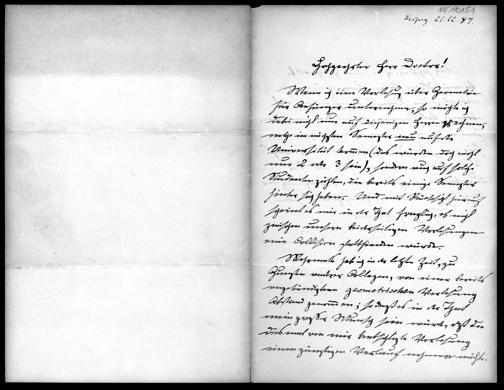 Leipzig 21.12.87.
Hochgeehrter Herr Doctor!
Wenn ich eine Vorlesung über Geometrie
für Anfänger unternehme, so möchte ich
dabei nicht nur auf diejenigen Herren rechnen,
welche im nächsten Semester neu auf die
Universität kommen (das würden doch nicht
nur 2 oder 3 sein), sondern auch auf solche
Studenten zählen, die bereits einige Semester
hinter sich haben. Und mit Rücksicht hierauf
scheint es mir in der That fraglich, ob nicht
zwischen unseren beiderseitigen Vorlesungen
eine Collision stattfinden würde.
Mehrmals habe ich in der letzten Zeit, zu
Gunsten anderer Collegen, von einer bereits
angekündigten geometrischen Vorlesung
Abstand genommen; so dass es in der That
mein großer Wunsch sein würde, dass die
diesmal von mir beabsichtigte Vorlesung
einen günstigen Verlauf nehmen möchte.